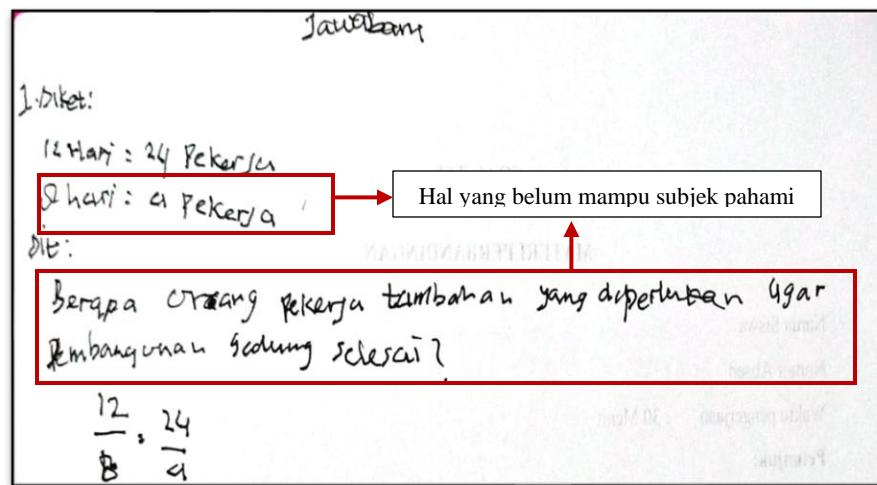 Jawaban
1. Diket:
12 Hari : 24 Pekerja
8 hari : a Pekerja
Hal yang belum mampu subjek pahami
Dit :
Berapa orang pekerja tambahan yang diperlukan agar
Pembangunan Gedung selesai?
12 = 24
8 a